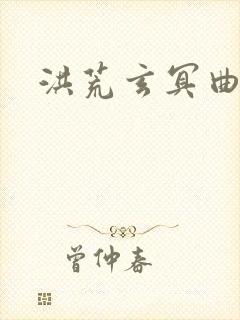 洪荒玄冥曲
曾仲春